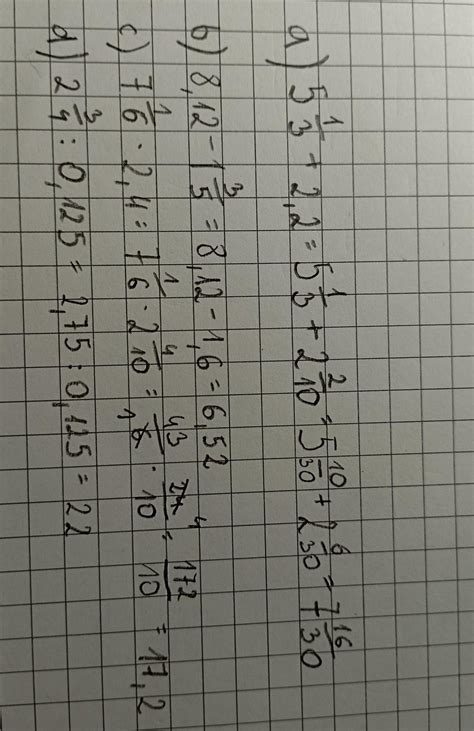 a) 5 1/3 + 2,2 = 5 1/3 + 2 2/10 = 5 10/30 + 2 6/30 = 7 16/30
b) 8,12 - 1 3/5 = 8,12 - 1,6 = 6,52
c) 7 1/6 · 2,4 = 7 1/6 · 2 4/10 = 43/6 1 · 24 4/10 = 172/10 = 17,2
d) 2 3/4 : 0,125 = 2,75 : 0,125 = 22